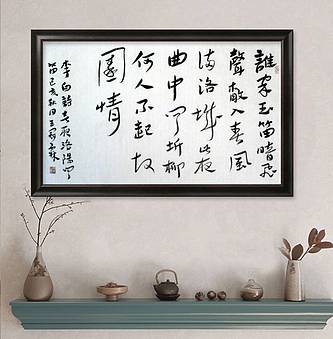 誰家玉笛暗飛
聲散入春風
滿洛城此夜
曲中聞折柳
何人不起故
園情
李白詩春夜洛陽聞
笛己亥秋月王